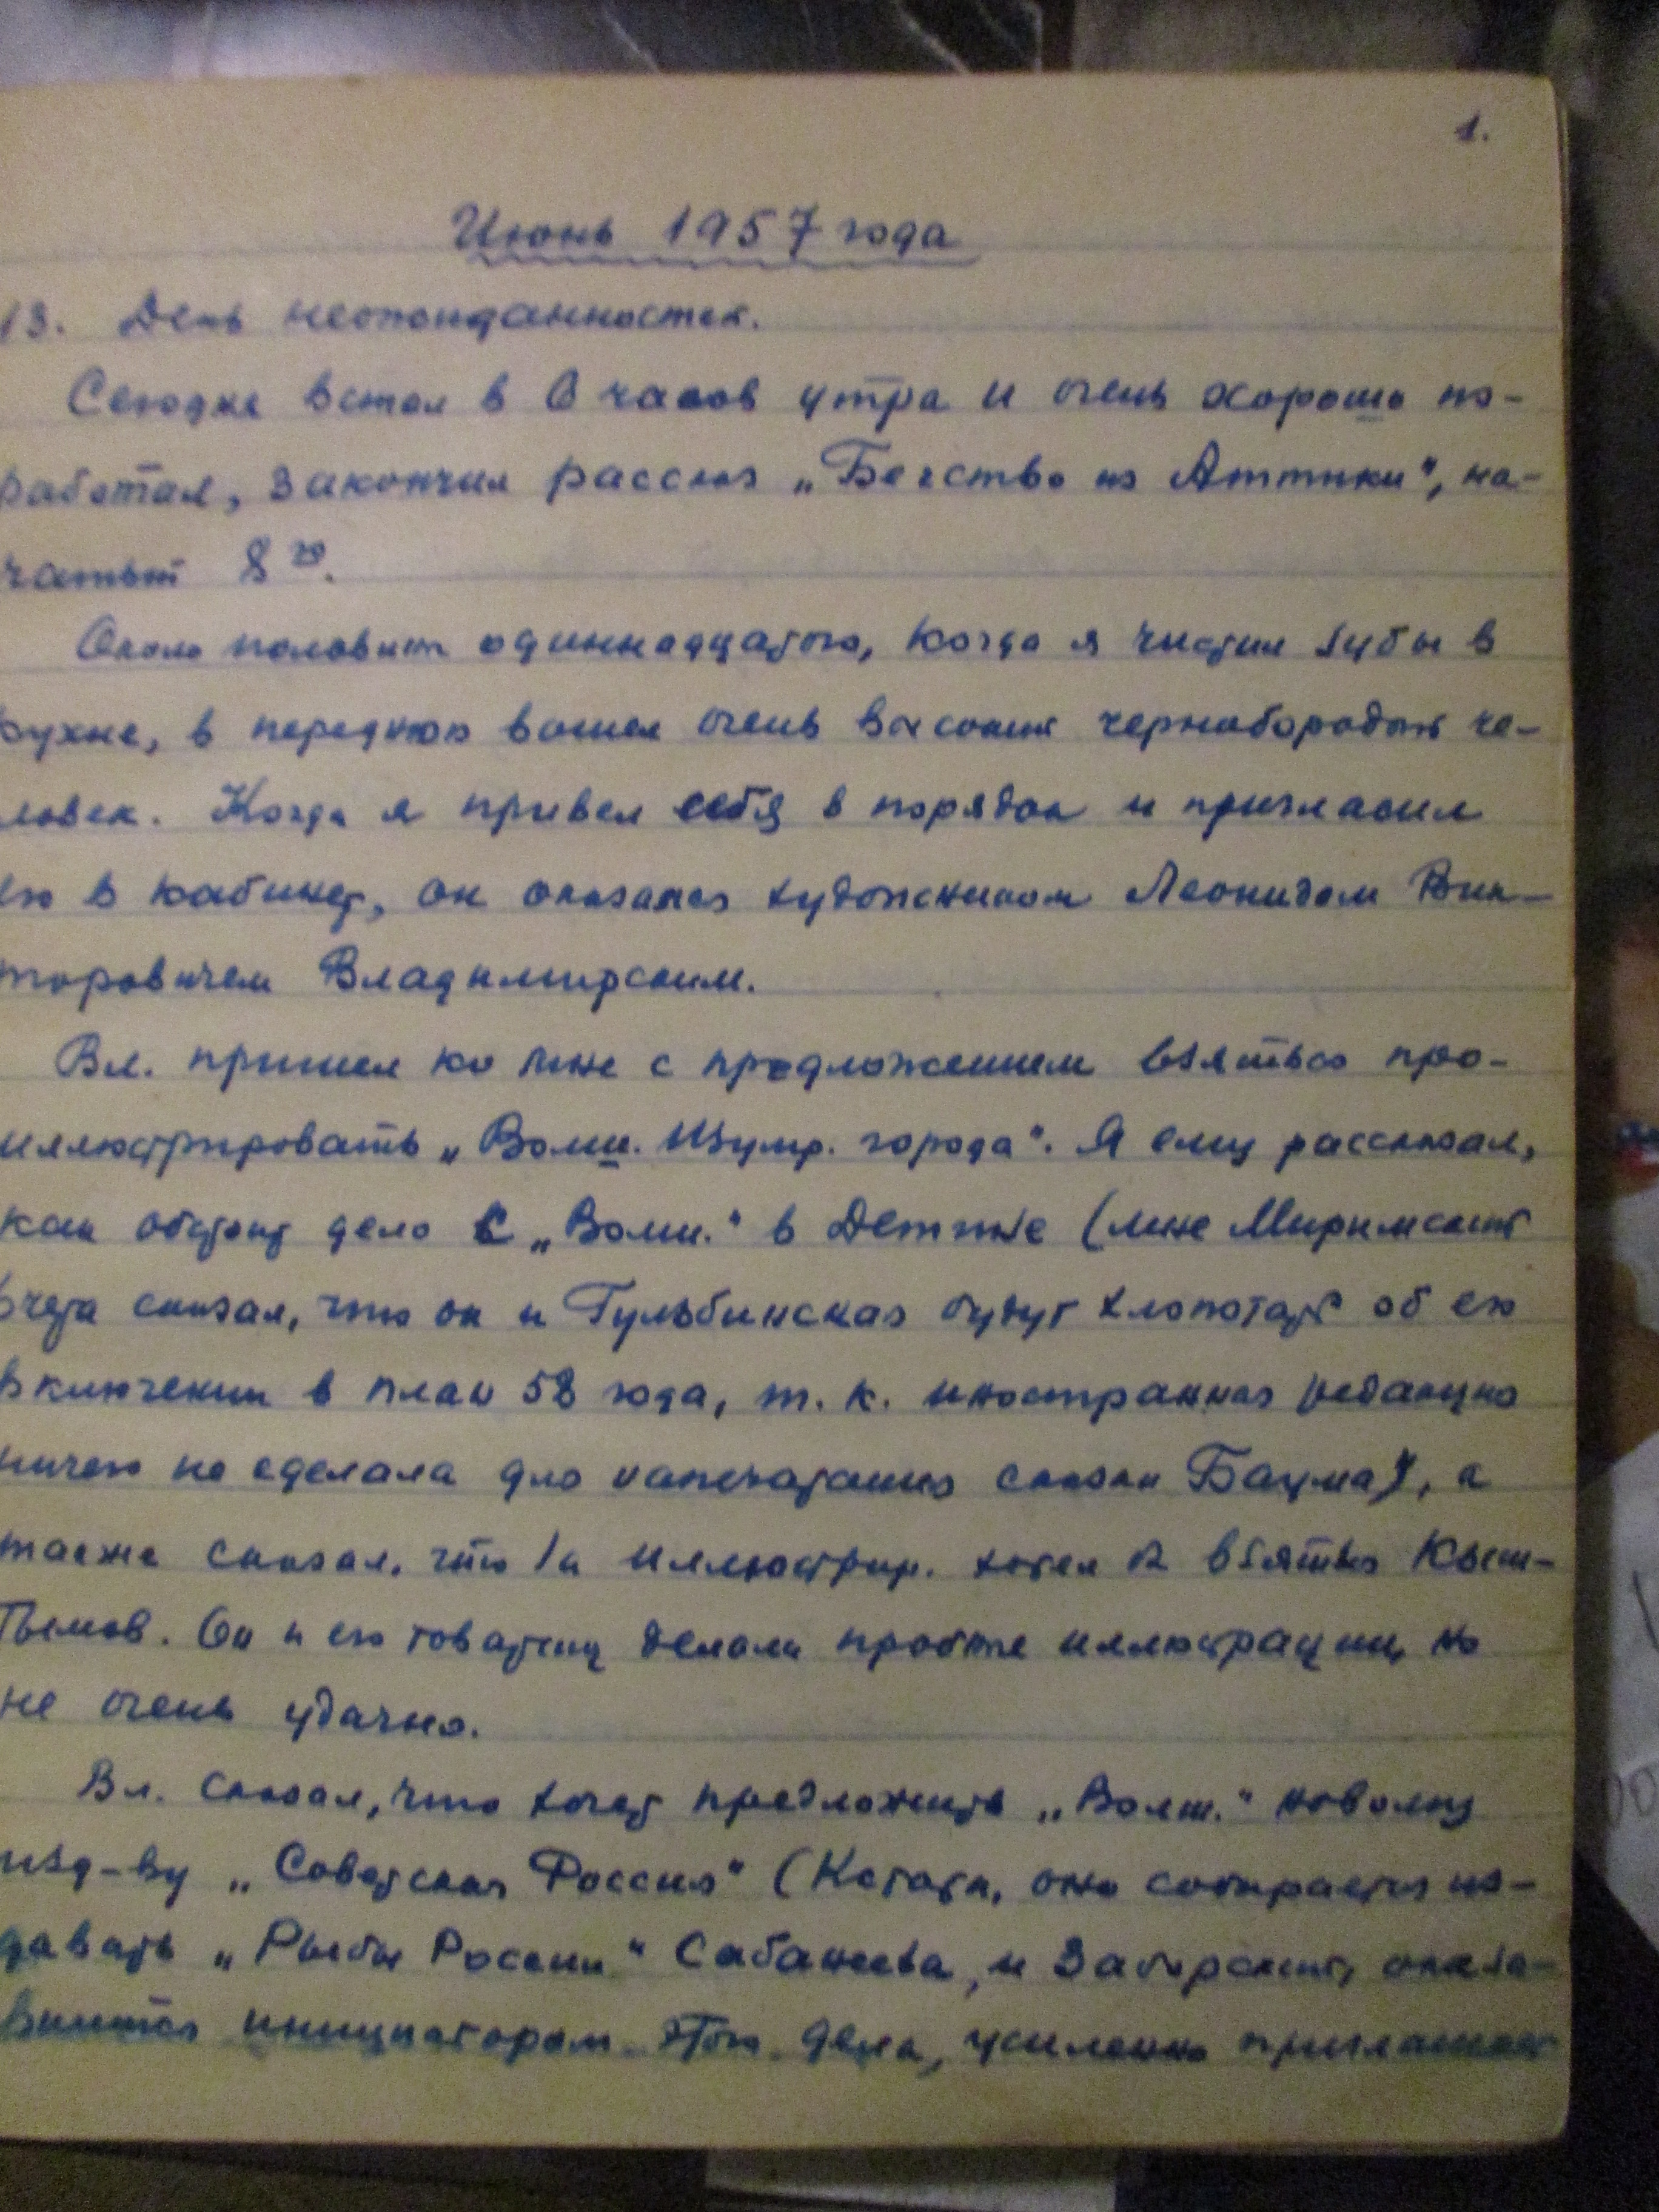 1.
Июнь 1957 года
13. День неожиданностей.
Сегодня встал в 6 часов утра и очень хорошо по-
работал, закончил рассказ „Бегство из Аттики", на-
чатый 8го.
Около половины одиннадцатого, когда я чистил зубы в
кухне, в переднюю вошел очень высокий чернобородый че-
ловек. Когда я привел себя в порядок и пригласил
его в кабинет, он оказался художником Леонидом Вик-
торовичем Владимирским.
Вл. пришел ко мне с предложением взяться про-
иллюстрировать „Волш. Изумр. города". Я ему рассказал,
как обстоит дело с „Волш." в Детгизе (мне Миримский
вчера сказал, что он и Гульбинская будут хлопотать об его
включении в план 58 года, т. к. иностранная редакция
ничего не сделала для напечатания сказки Баума), а
также сказал, что за иллюстрир. хотел взяться Кыш-
тымов. Он и его товарищ делали пробные иллюстрации, но
не очень удачно.
Вл. сказал, что хочет предложить „Волш." новому
изд-ву „Советская Россия" (Кстати, оно собирается из-
давать „Рыбы России" Сабанеева, и Заборский, оказа-
вшийся инициатором этого дела, усиленно приглашает